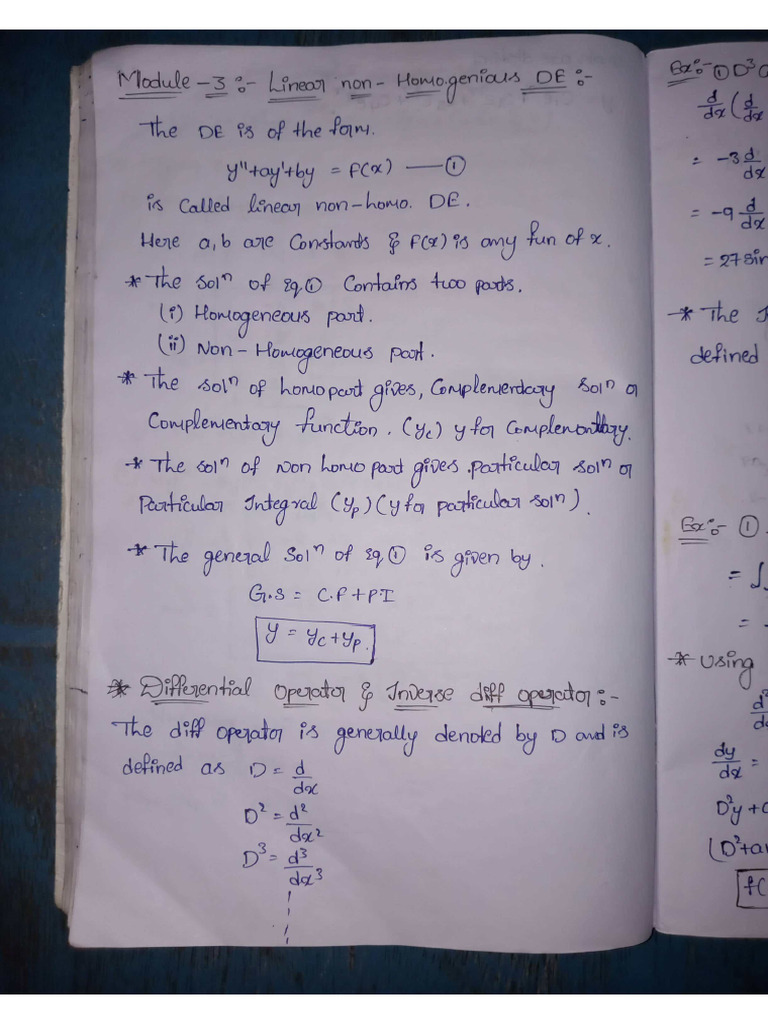 Module - 3 :- Linear non-Homogenious DE :-
The DE is of the form.
y"+ay'+by = f(x) —— ①
is Called linear non-homo. DE.
Here a, b are Constands & f(x) is any fun of x.
* The solⁿ of Eq ① Contains two parts.
(i) Homogeneous part.
(ii) Non-Homogeneous part.
* The solⁿ of homo part gives, Complementary solⁿ or
Complementary function. (yc) y for Complementary.
* The solⁿ of Non homo part gives particular solⁿ or
Particular Integral (yp) (y for particular solⁿ).
* The general Solⁿ of Eq ① is given by.
G.S = C.F + P.I
y = yc + yp.
* Differential Operator & Inverse diff operator :-
The diff operator is generally denoted by D and is
defined as D = d/dx
D² = d²/dx²
D³ = d³/dx³
Ex:- ① D³
d/dx (d/dx
= -3 d/dx
= -9 d/dx
= 27 sin
* The
defined
Ex:- ①
= ∫
=
* Using
dy/dx =
D²y +
(D²+a
f(